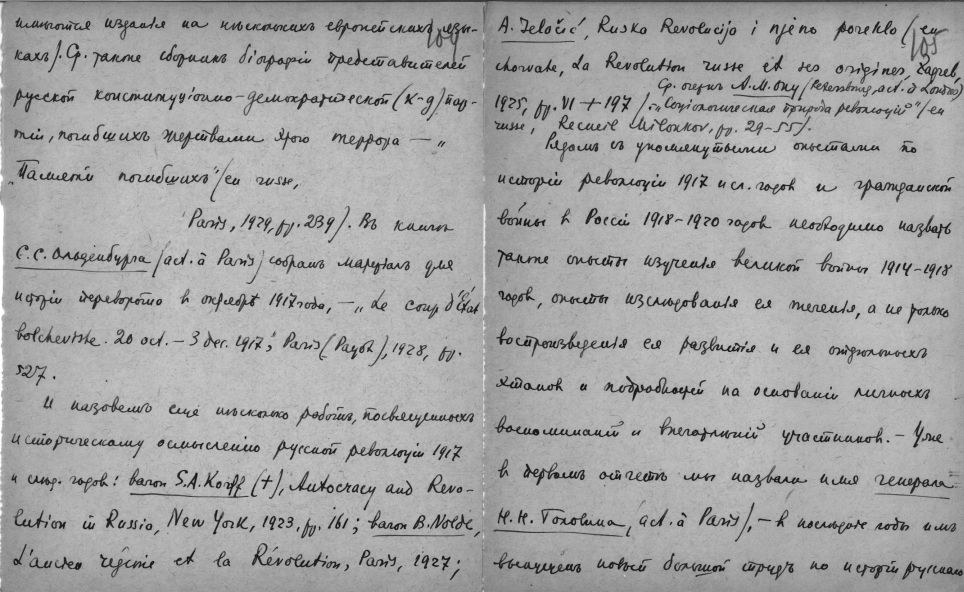 имѣются изданія на нѣсколькихъ европейскихъ язы-
кахъ). Ср. также сборникъ біографій представителей
русской конституціонно-демократической (к-д) пар-
тіи, погибшихъ жертвами террора — „
„Памяти погибшихъ" (en russe,
Paris, 1929, pp. 239). Въ книгѣ
С.С. Ольденбурга (act. à Paris) собранъ матеріалъ для
исторіи переворота въ октябрѣ 1917 года, — „Le coup d'État
bolcheviste. 20 oct. — 3 dec. 1917", Paris (Payot), 1928, pp.
527.
И назовемъ еще нѣсколько работъ, посвященныхъ
историческому осмысленію русской революціи 1917
и слѣд. годовъ: baron S.A. Korff (+), Autocracy and Revo-
lution in Russia, New York, 1923, pp. 161; baron B. Nolde,
L'ancien régime et la Révolution, Paris, 1927;
105
A. Jelačić, Ruska Revolucija i njeno poreklo (en
chorvate, La Révolution russe et ses origines, Zagreb,
1925, pp. VI + 197). Ср. очеркъ А.М. Ону (act. à London)
„Соціологическая природа революціи" (en
russe, Recueil Milonkov, pp. 29-55).
Рядомъ съ упомянутыми опытами по
исторіи революціи 1917 и сл. годовъ и гражданской
войны въ Россіи 1918-1920 годовъ необходимо назвать
также опыты изученія великой войны 1914-1918
годовъ, опыты изслѣдованія ея теченія, а не только
воспроизведенія ея развитія и ея отдѣльныхъ
этаповъ и подробностей на основаніи личныхъ
воспоминаній и впечатлѣній участниковъ. — Уже
въ первомъ отчетѣ мы назвали имя генерала
Н.Н. Головина (act. à Paris), — въ послѣдніе годы имъ
выпущенъ новый большой трудъ по исторіи русскаго